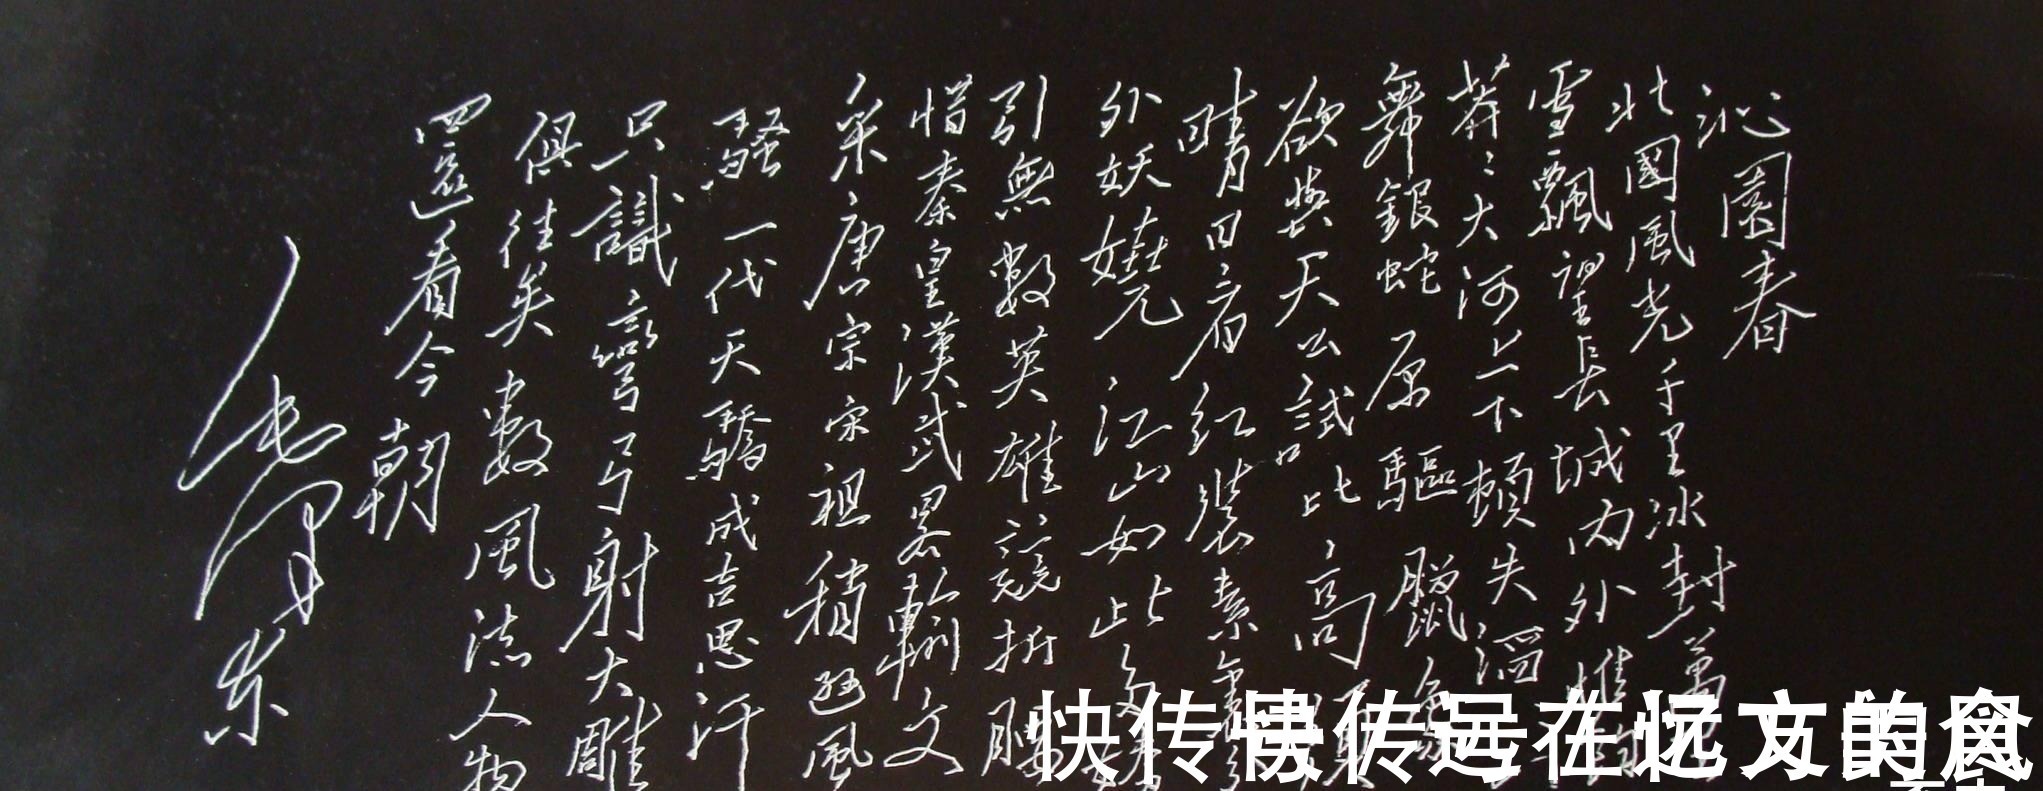 沁園春
北國風光千里冰封萬
雪飄望長城内外惟
莽〻大河上下頓失滔
舞銀蛇原驅臘象
欲與天公試比高
晴日看紅裝素裹
外妖嬈江山如此多
引無數英雄競折腰
惜秦皇漢武畧輸文
采唐宗宋祖稍遜風
騷一代天驕成吉思汗
只識彎弓射大雕
俱往矣數風流人物
還看今朝
毛澤东